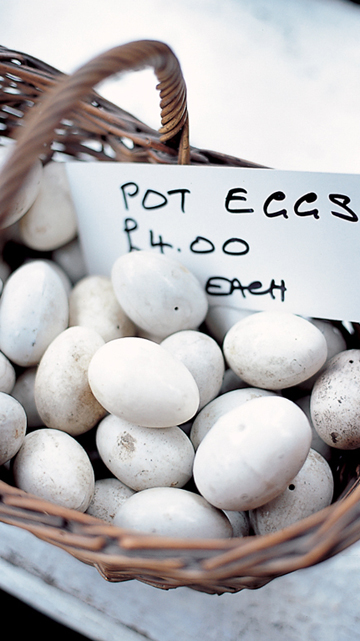 POT EGGS
£4.00
EACH